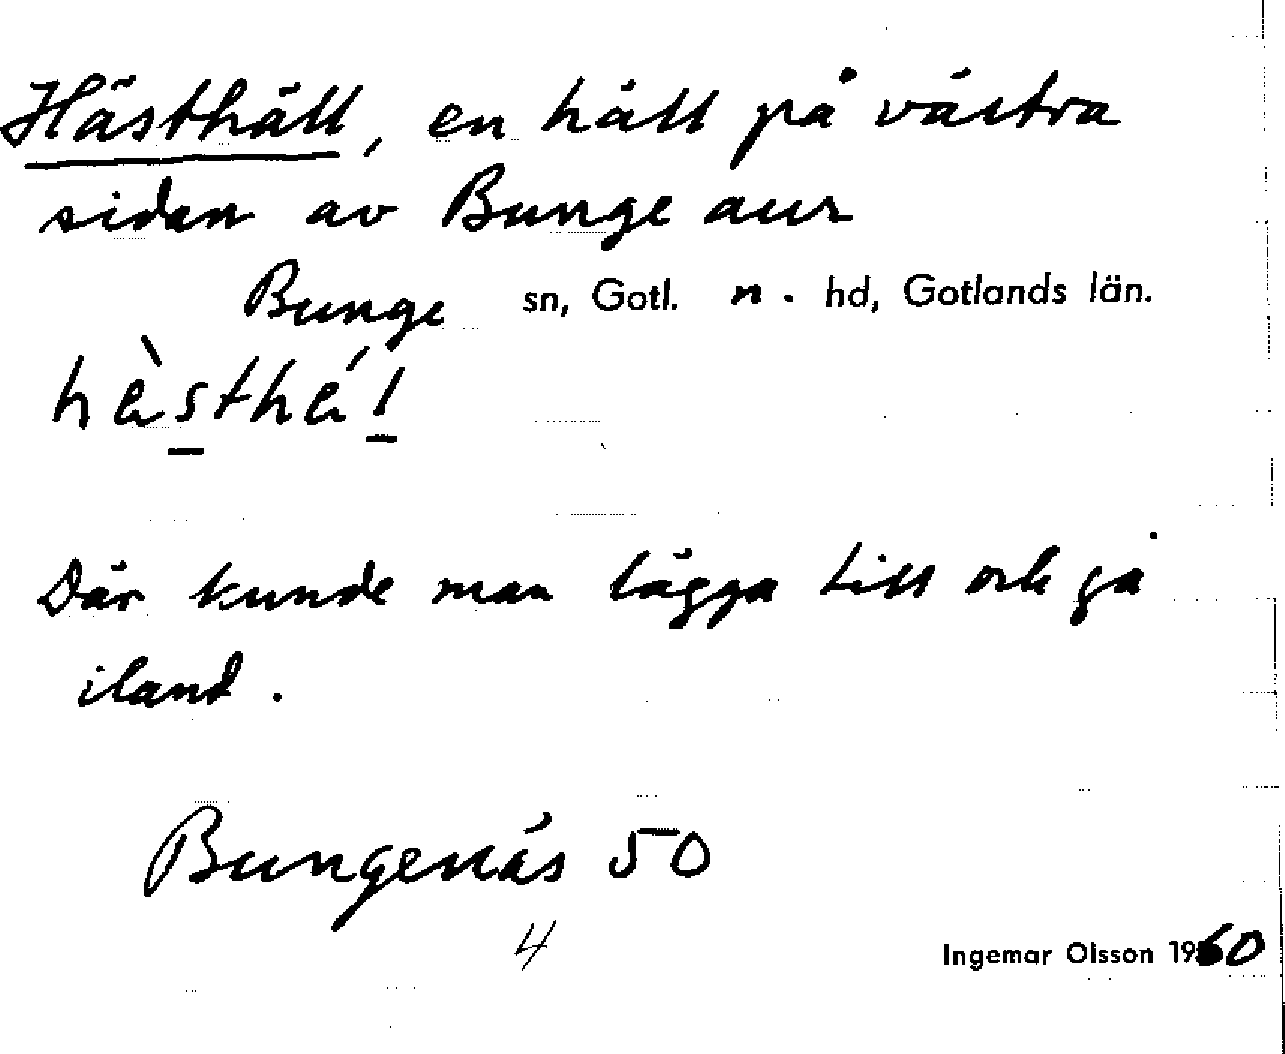 Hästhäll, en häll på västra
sidan av Bunge aur
Bunge sn, Gotl. n. hd, Gotlands län.
hàsthá l
Där kunde man lägga till och gå
iland.
Bungenäs 50
4
Ingemar Olsson 1960